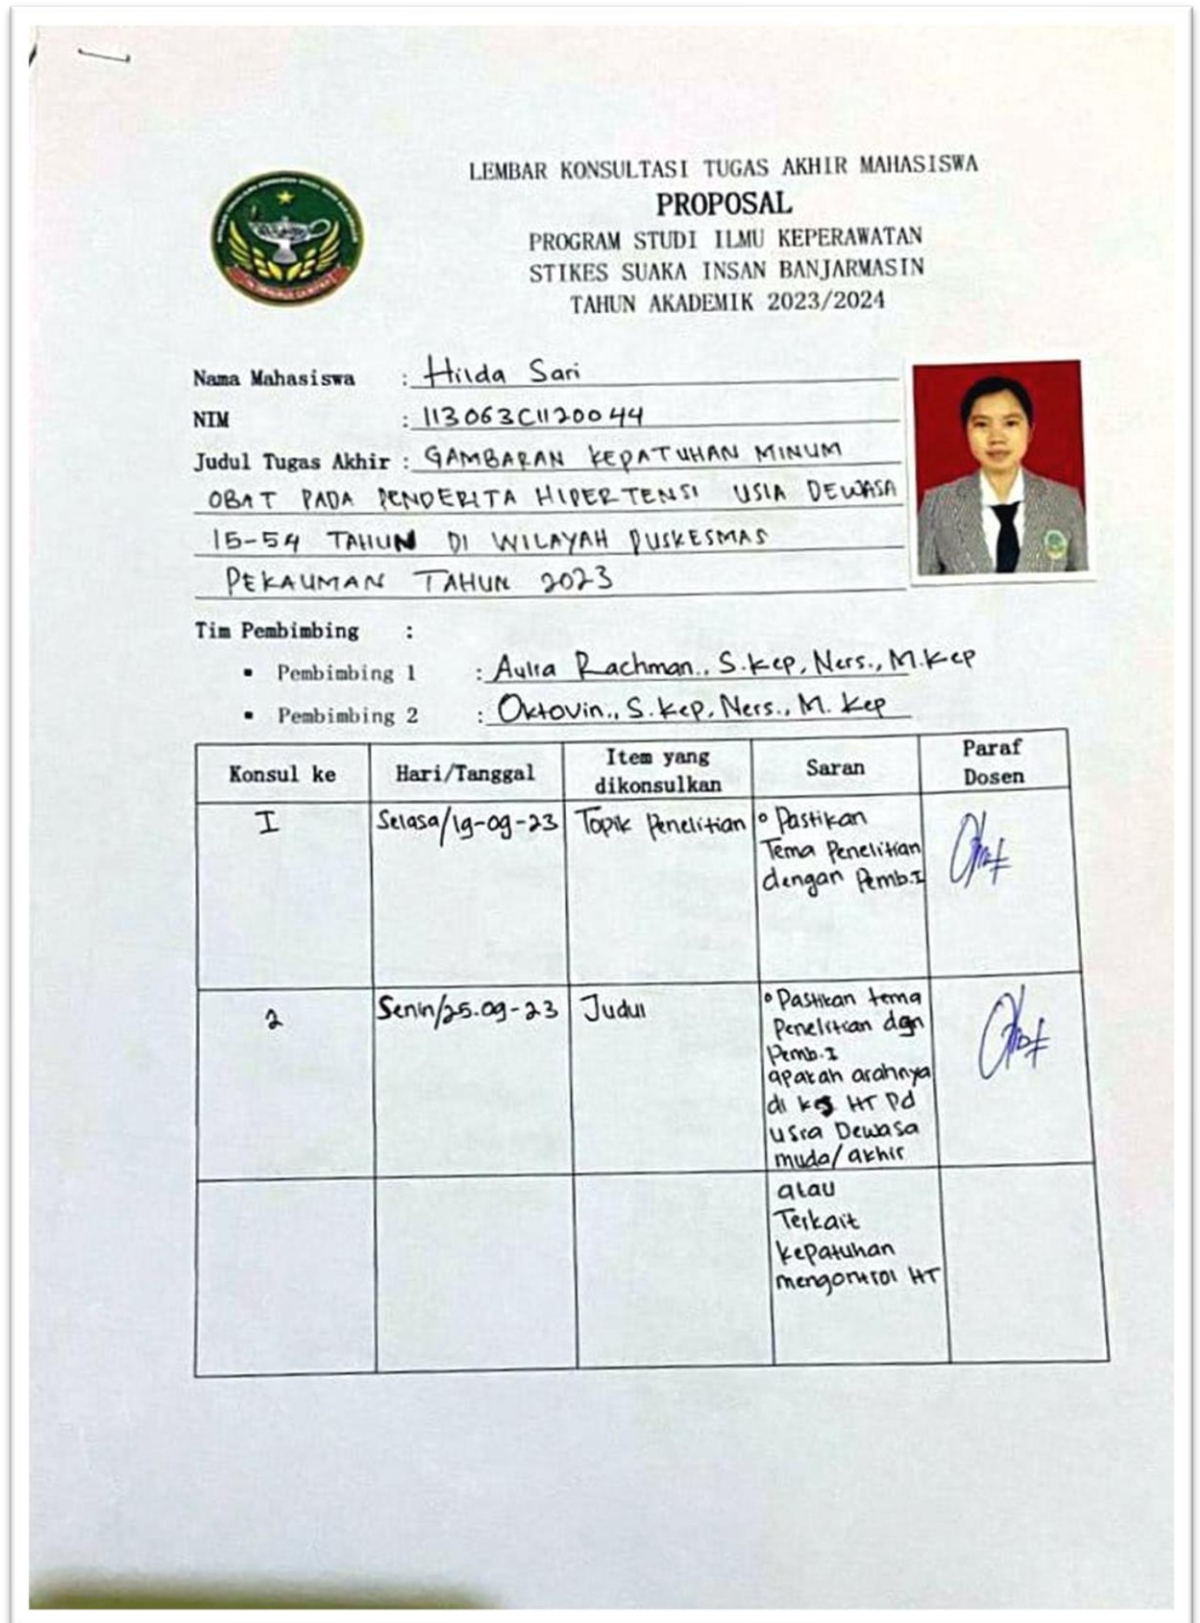 LEMBAR KONSULTASI TUGAS AKHIR MAHASISWA
PROPOSAL
PROGRAM STUDI ILMU KEPERAWATAN
STIKES SUAKA INSAN BANJARMASIN
TAHUN AKADEMIK 2023/2024
Nama Mahasiswa : Hilda Sari
NIM : 113063C1120044
Judul Tugas Akhir : GAMBARAN KEPATUHAN MINUM
OBAT PADA PENDERITA HIPERTENSI USIA DEWASA
15-54 TAHUN DI WILAYAH PUSKESMAS
PEKAUMAN TAHUN 2023
Tim Pembimbing :
▪ Pembimbing 1 : Aulia Rachman., S.Kep, Ners., M.Kep
▪ Pembimbing 2 : Oktovin., S.Kep, Ners., M. Kep
Konsul ke
Hari/Tanggal
Item yang
dikonsulkan
Saran
Paraf
Dosen
I
Selasa/19-09-23
Topik Penelitian
• Pastikan
Tema Penelitian
dengan Pemb.I
2
Senin/25.09-23
Judul
• Pastikan tema
Penelitian dgn
Pemb.I
apakah arahnya
di kes HT Pd
usia Dewasa
muda/akhir
atau
Terkait
kepatuhan
mengontrol HT